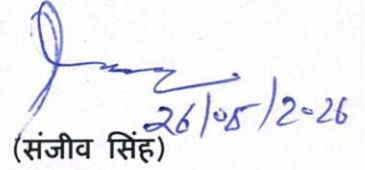 26/05/2026
(संजीव सिंह)